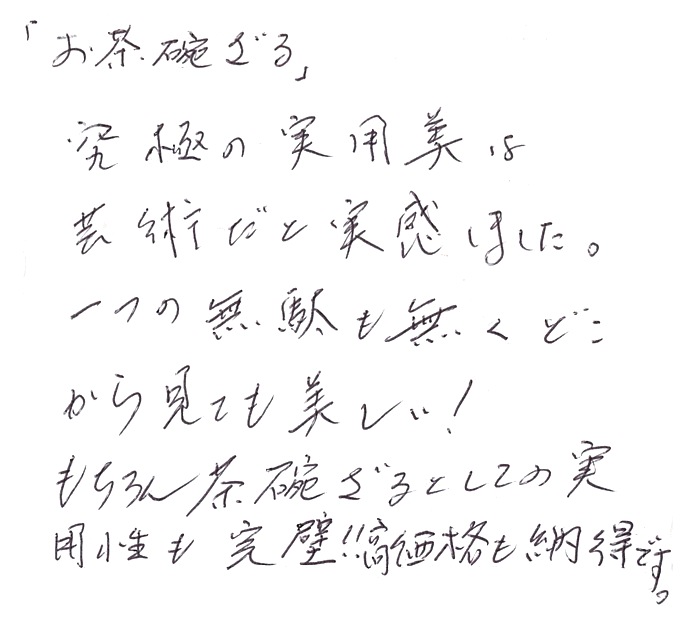 「お茶碗ざる」
究極の実用美は
芸術だと実感しました。
一つの無駄も無くどこ
から見ても美しい！
もちろん茶碗ざるとしての実
用性も完璧!!高価格も納得です。